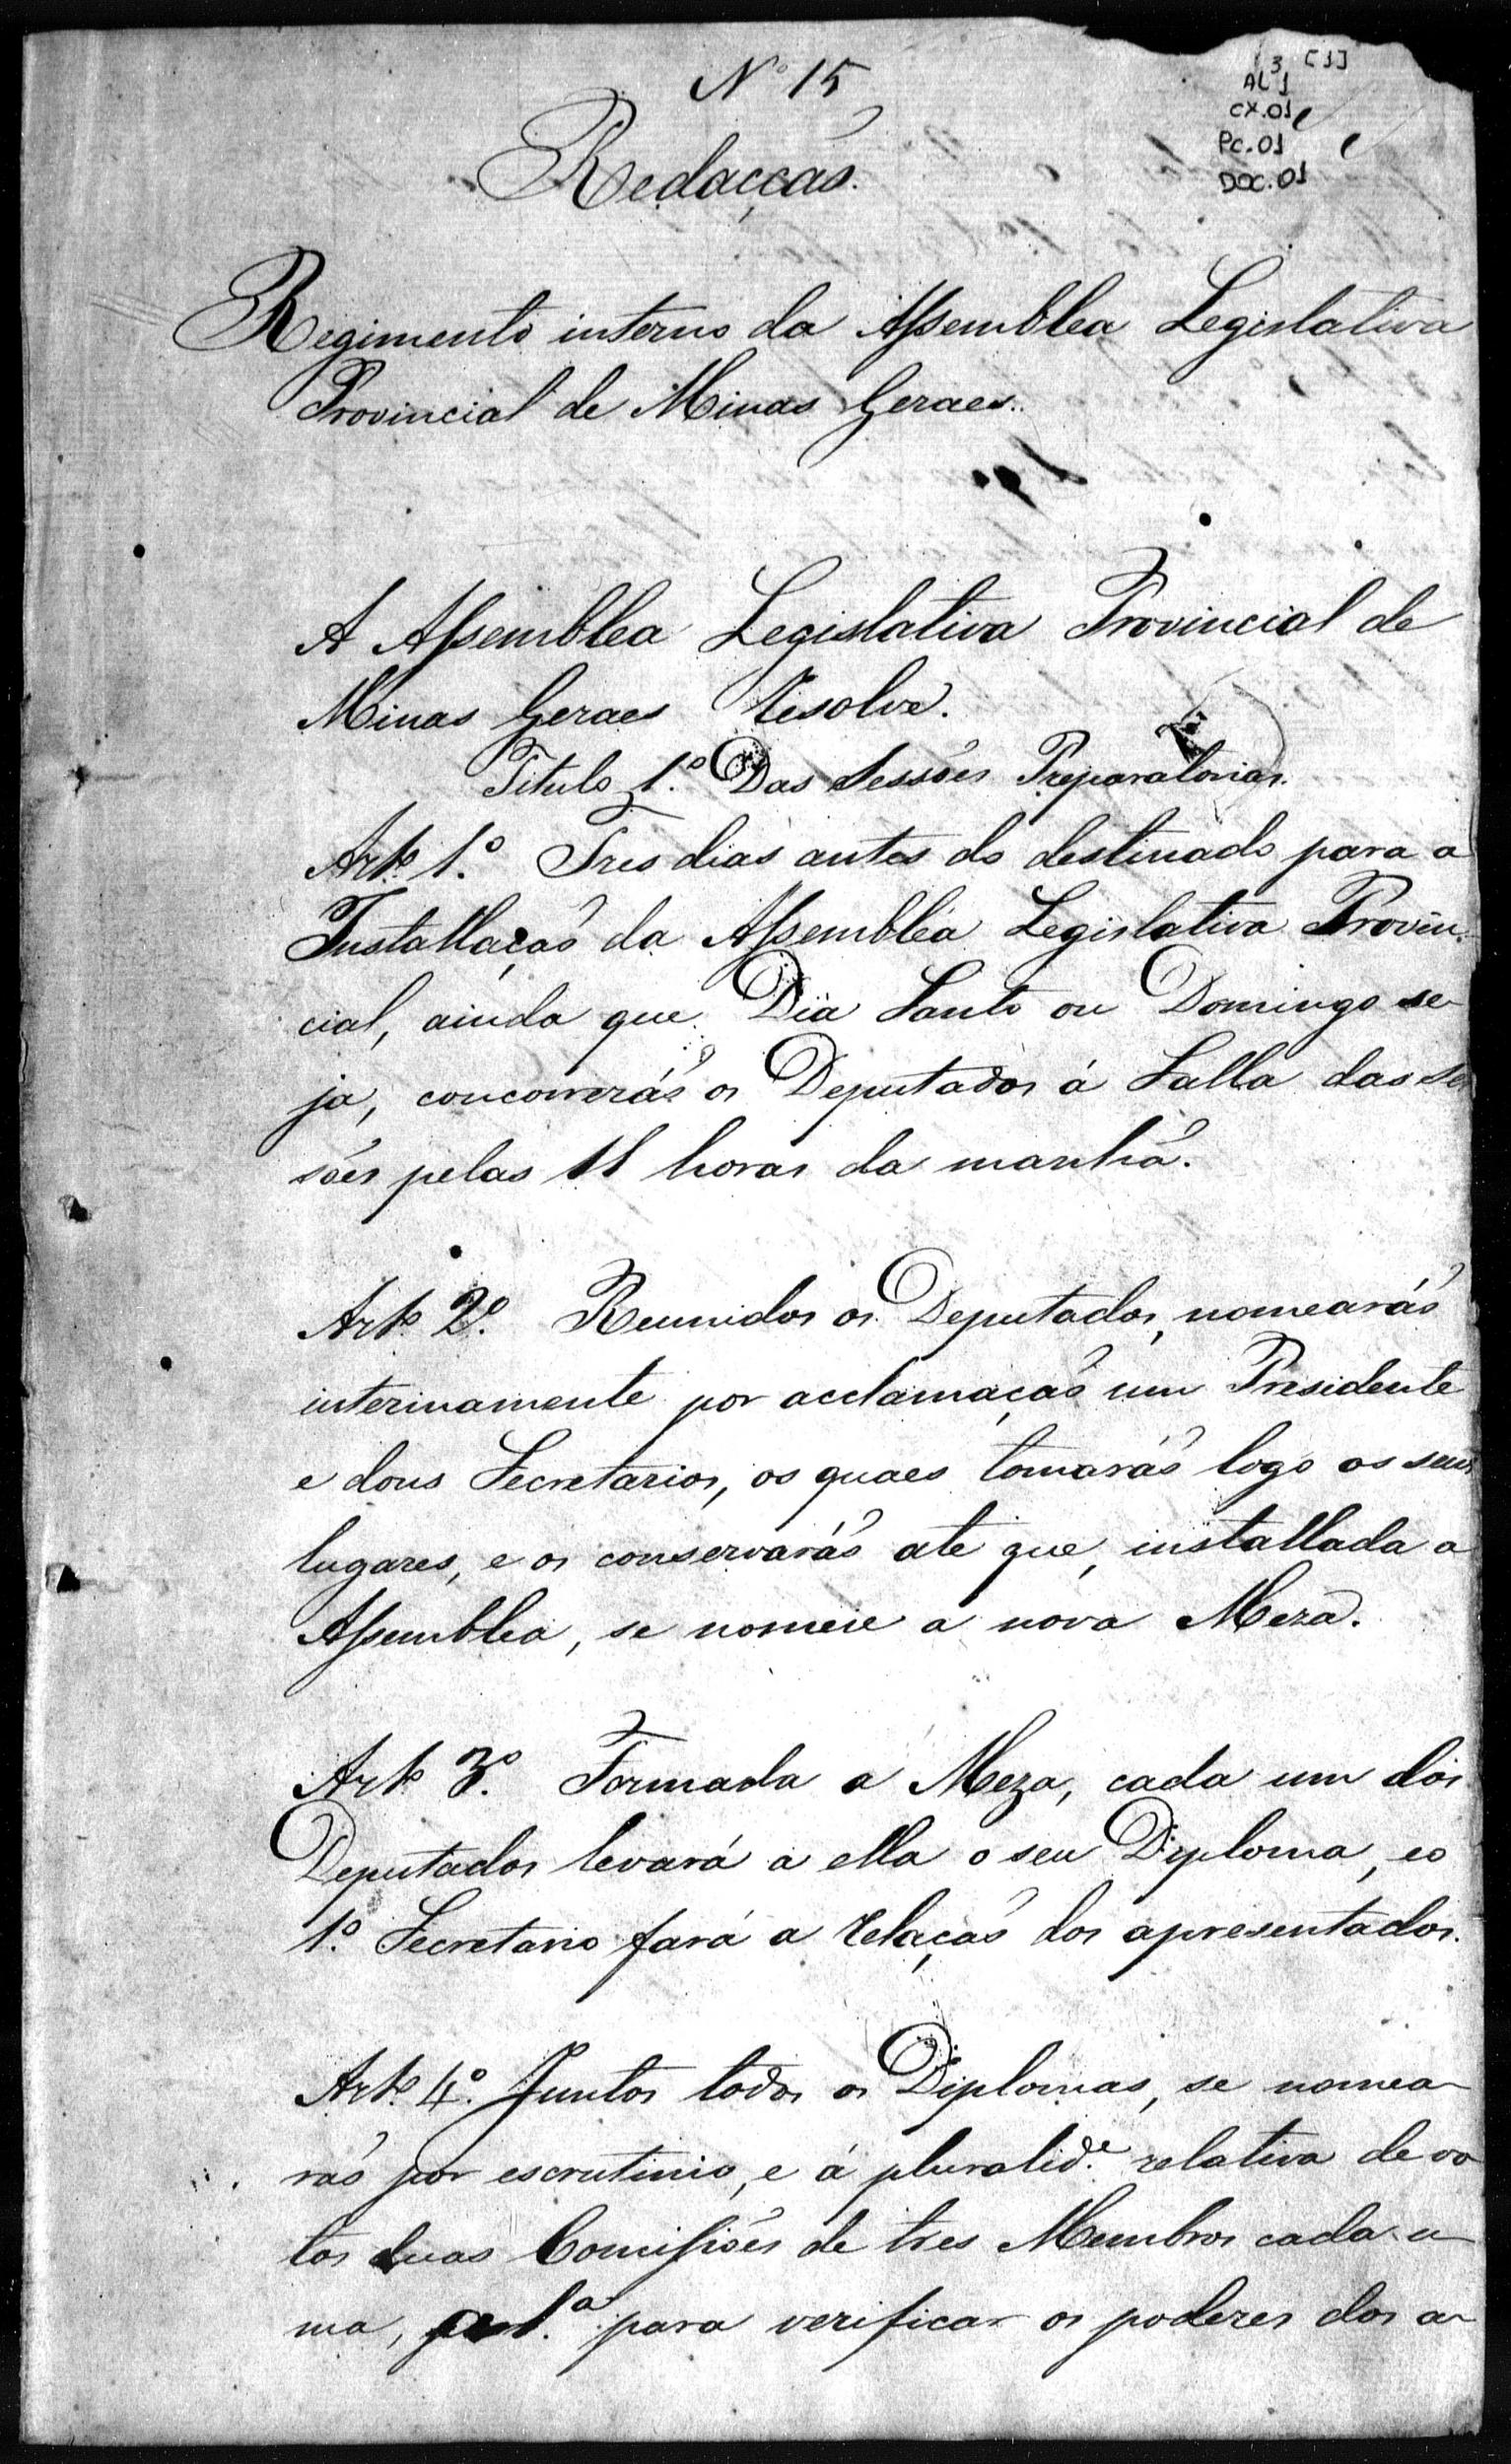 Nº 15
3 [1]
AL 1
CX.01
PC.01
DOC.01
Redacção.
Regimento interno da Assemblea Legislativa
Provincial de Minas Geraes.
A Assemblea Legislativa Provincial de
Minas Geraes Resolve.
Titulo 1.º Das Sessões Preparatorias.
Artº 1.º Tres dias antes do destinado para a
Installação da Assembléa Legislativa Provin-
cial, ainda que Dia Santo ou Domingo se-
ja, concorrerão os Deputados á Salla das Ses
sões pelas 11 horas da manhã.
Artº 2.º Reunidos os Deputados, nomearão
interinamente por acclamação um Presidente
e dous Secretarios, os quaes tomarão logo os seus
lugares, e os conservarão ate que, installada a
Assemblea, se nomeie a nova Meza.
Artº 3.º Formada a Meza, cada um dos
Deputados levará a ella o seu Diploma, eo
1.º Secretario fará a relação dos apresentados.
Artº 4.º Juntos todos os Diplomas, se nomea-
rão por escrutinio, e á pluralid.e relativa de vo
tos duas Comissões de tres Membros cada u-
ma, a 1.ª para verificar os poderes dos a-